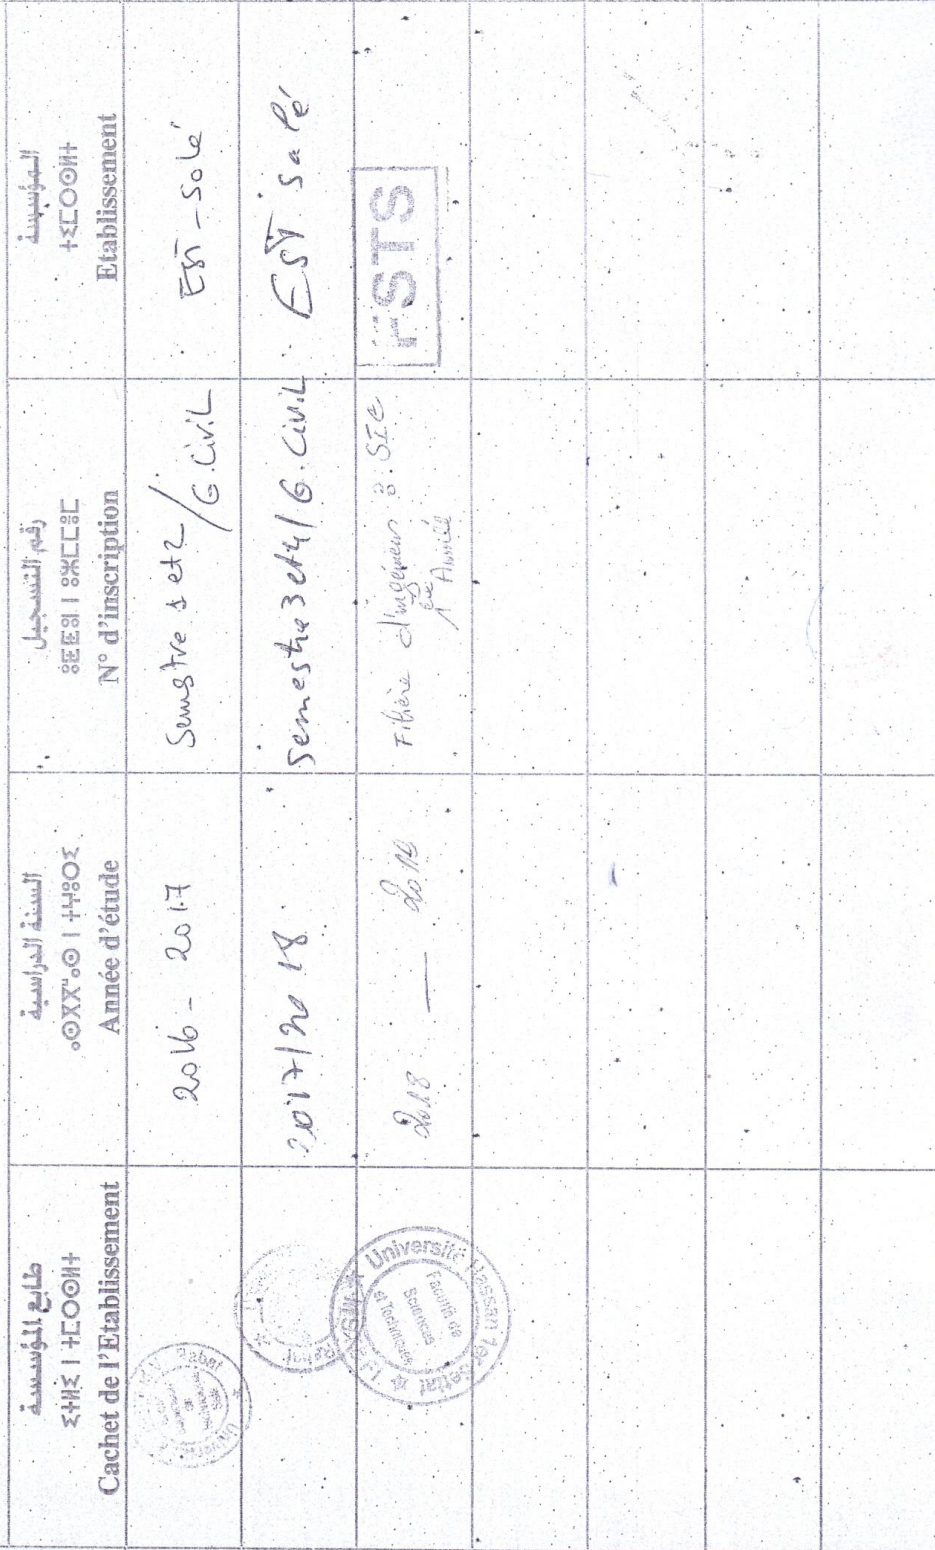 المؤسسة
ⵜⵉⵎⵙⵙⵍⵜ
Etablissement
رقم التسجيل
N° d'inscription
السنة الدراسية
Année d'étude
طابع المؤسسة
Cachet de l'Etablissement
EST - Salé
Semestre 1 et 2 / G. Civil
2016 - 2017
EST Salé
Semestre 3 et 4 / G. Civil
2017/2018
FSTS
Filière d'ingénieur : SIC
1ère Année
2018 —
Université Hassan 1er Settat
Faculté des
Sciences
et Techniques